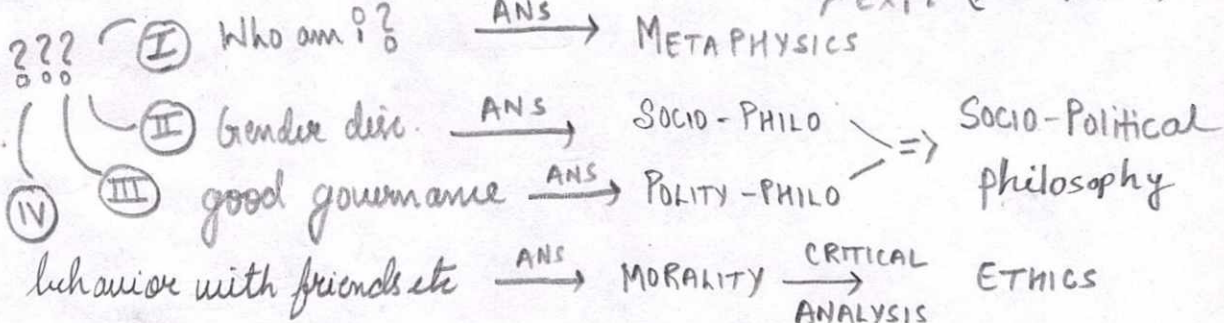 ??? I Who am i? ANS → METAPHYSICS
II Gender disc. ANS → SOCIO-PHILO => Socio-Political philosophy
III good governance ANS → POLITY-PHILO
IV
behavior with friends etc ANS → MORALITY CRITICAL ANALYSIS → ETHICS